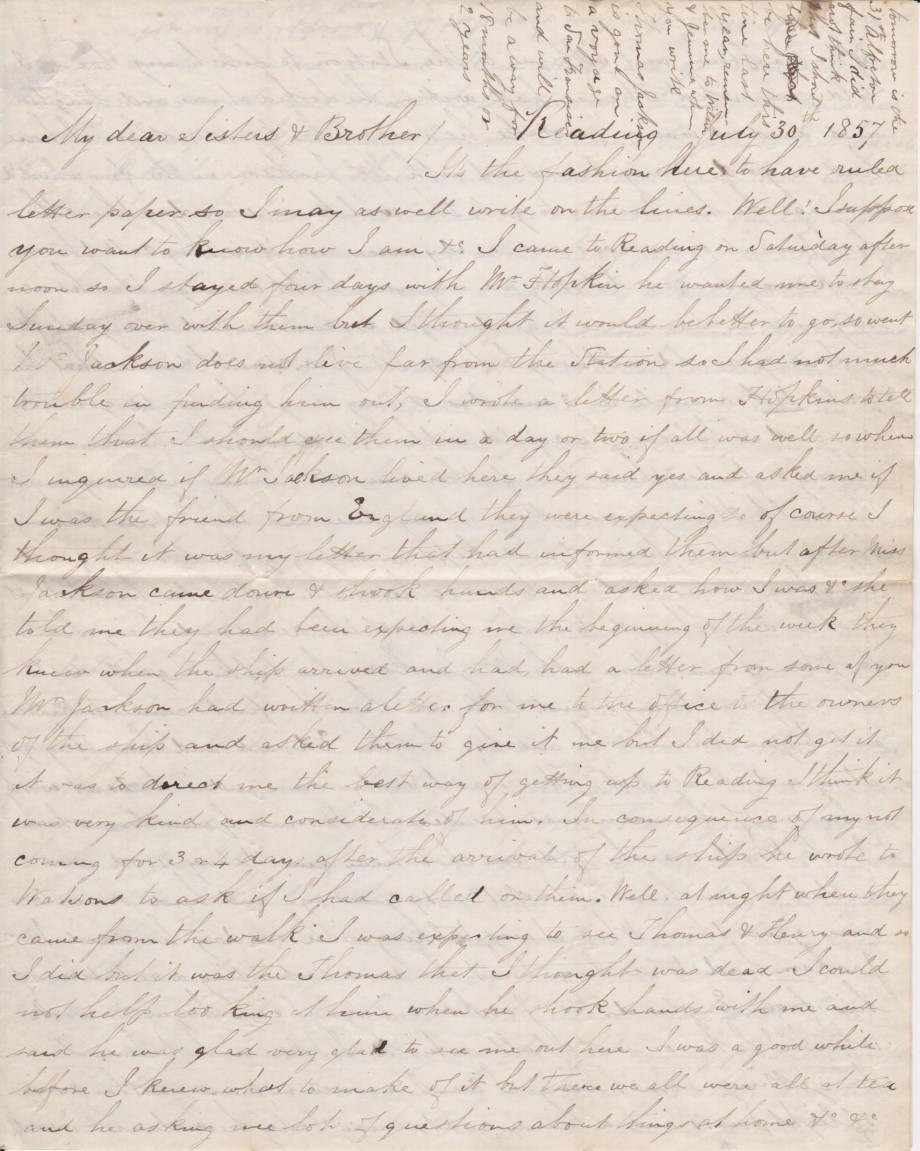 tomorrow is the
31st of
I did
not think
I should
be here this
time last
year
to
& you write
Thomas Jackson
is gone on
a voyage
to San Francisco
and will
be away for
18 months or
2 years
My dear Sisters & Brother / Reading July 30th 1857,
It's the fashion here to have ruled
letter paper so I may as well write on the lines. Well! I suppose
you want to know how I am &c I came to Reading on Saturday after
noon so I stayed four days with Mr Hopkin he wanted me to stay
Sunday over with them but I thought it would be better to go, so went
Mr Jackson does not live far from the Station so I had not much
trouble in finding him out, I wrote a letter from Hopkins to tell
them that I should see them in a day or two if all was well so when
I inquired if Mr Jackson lived here they said yes and asked me if
I was the friend from England they were expecting so of course I
thought it was my letter that had informed them but after Miss
Jackson came down & shook hands and asked how I was &c she
told me they had been expecting me the beginning of the week they
knew when the ship arrived and had, had a letter from some of you
Mr Jackson had written a letter for me to the office of the owners
of the ship and asked them to give it me but I did not get it
it was to direct me the best way of getting up to Reading I think it
was very kind and considerate of him. In consequence of my not
coming for 3 or 4 days after the arrival of the ship he wrote to
Watsons to ask if I had called on them. Well at night when they
came from the walk I was expecting to see Thomas & Henry and so
I did but it was the Thomas that I thought was dead I could
not help looking at him when he shook hands with me and
said he was glad very glad to see me out here I was a good while
before I knew what to make of it but there we all were all at tea
and he asking me lots of questions about things at home &c &c